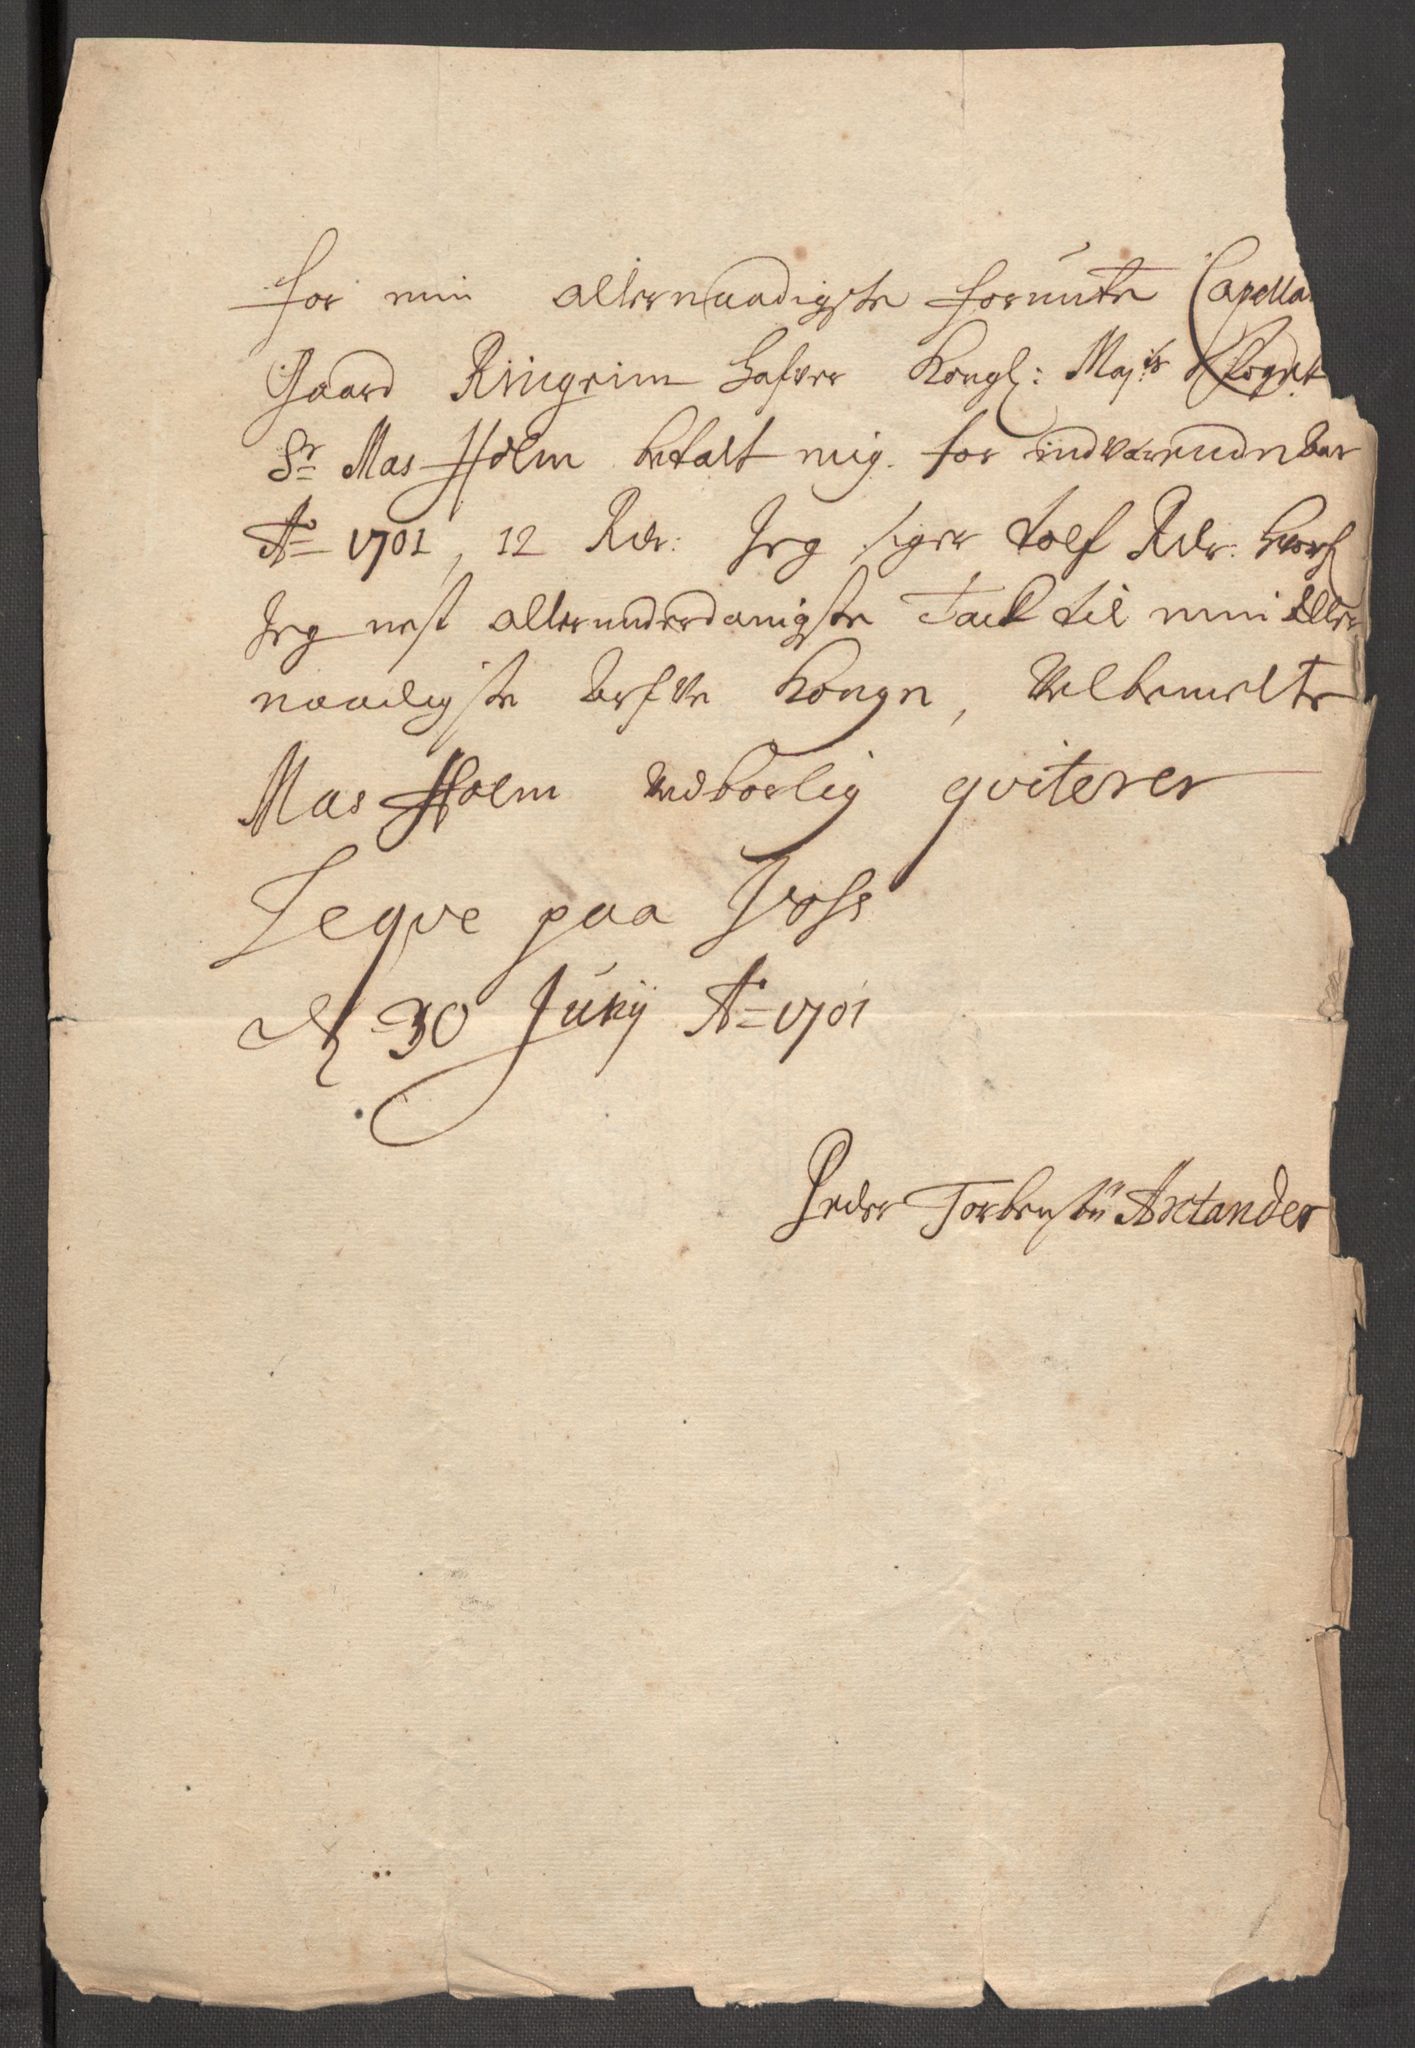 for min allernaadigste forunte Capella
Gaard Ringrim hafver Kongl: Maj:ts Foget
Sr Mas Holm betalt mig for indverende aar
Ao 1701, 12 Rdr: Jeg siger tolf Rdr: hvorf
Jeg nest allerunderdanigste Tack til min Aller
naadigste Arfve Konge, Velbemelte
Mas Holm vedborlig qviterer
Leqve paa Voss
d 30 Junij Ao 1701
Peder Torbensøn Axtander